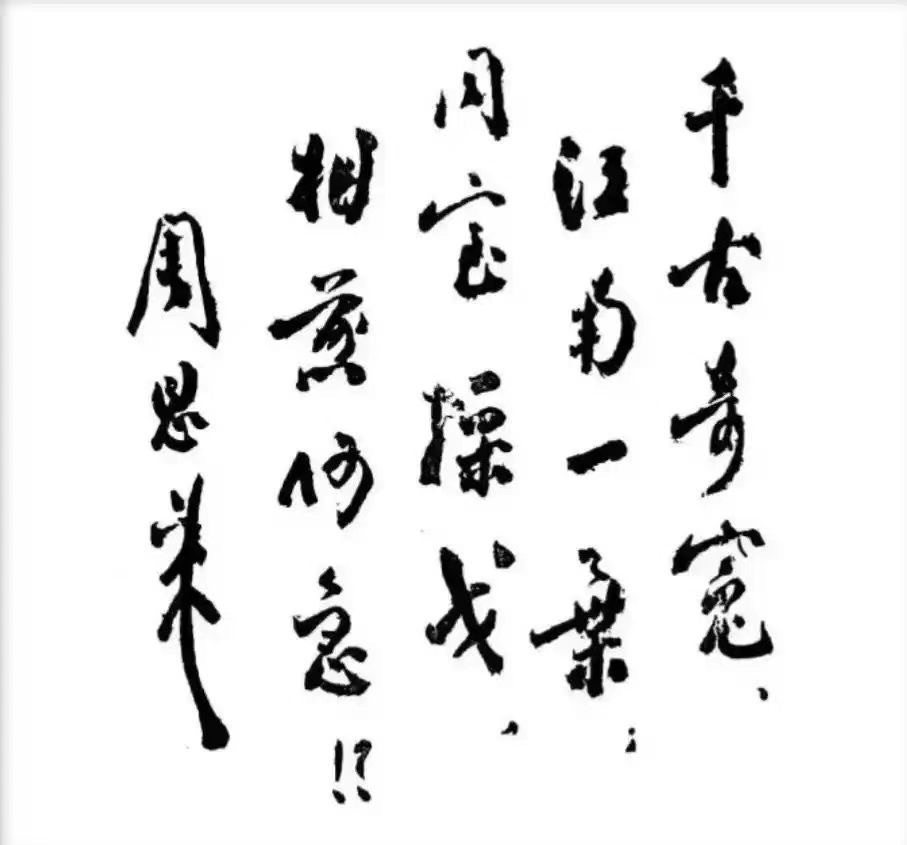 千古奇冤、
江南一葉；
同室操戈、
相煎何急!?
周恩来